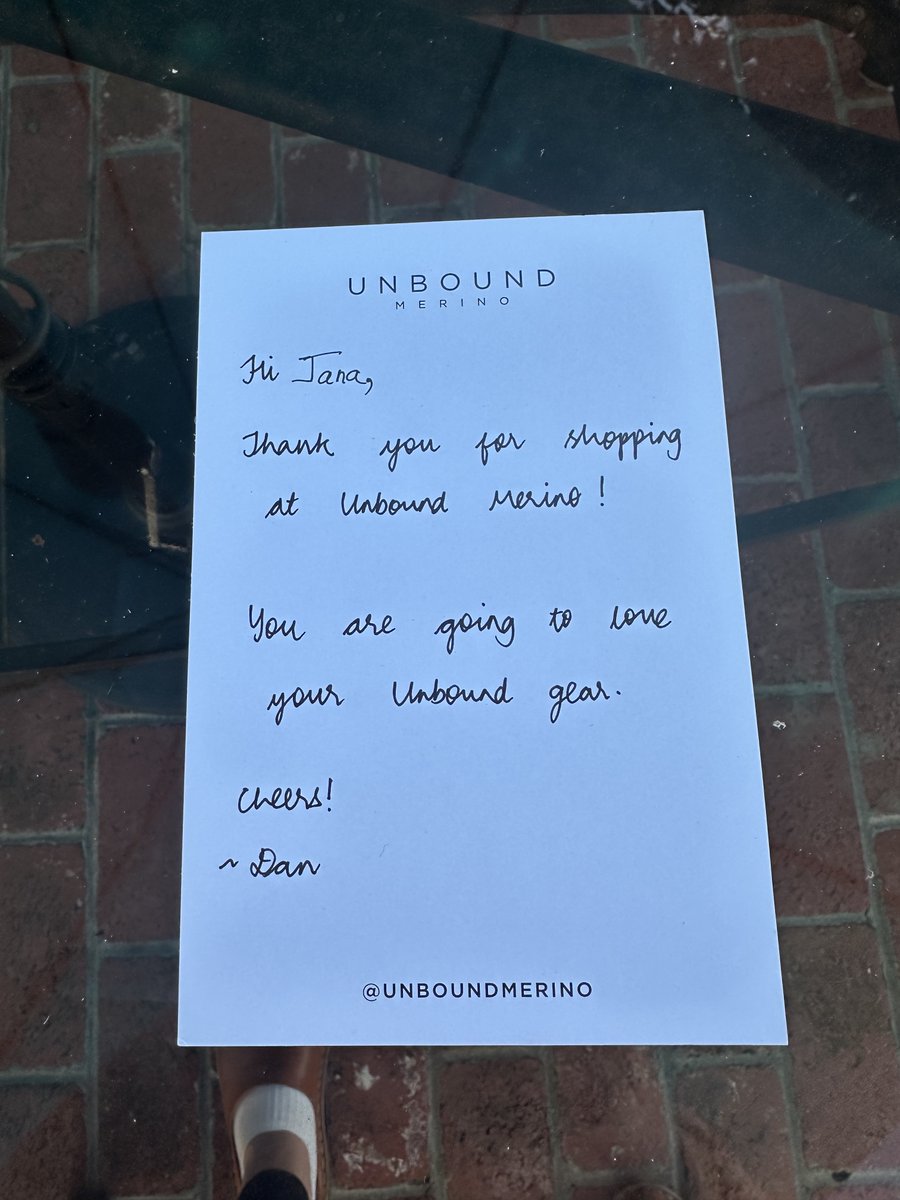 UNBOUND
MERINO
Hi Jana,
Thank you for shopping
at Unbound Merino!
You are going to love
your Unbound gear.
Cheers!
~ Dan
@UNBOUNDMERINO